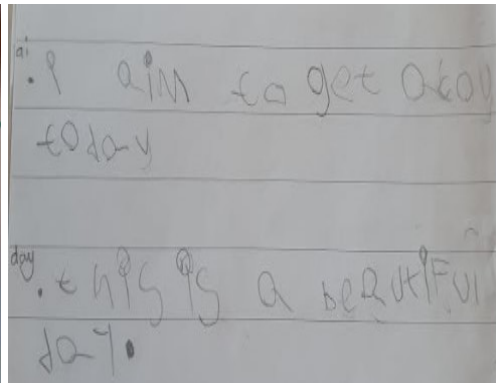 ai
. I aim to get a toy
today
day
. this is a beautiful
day.